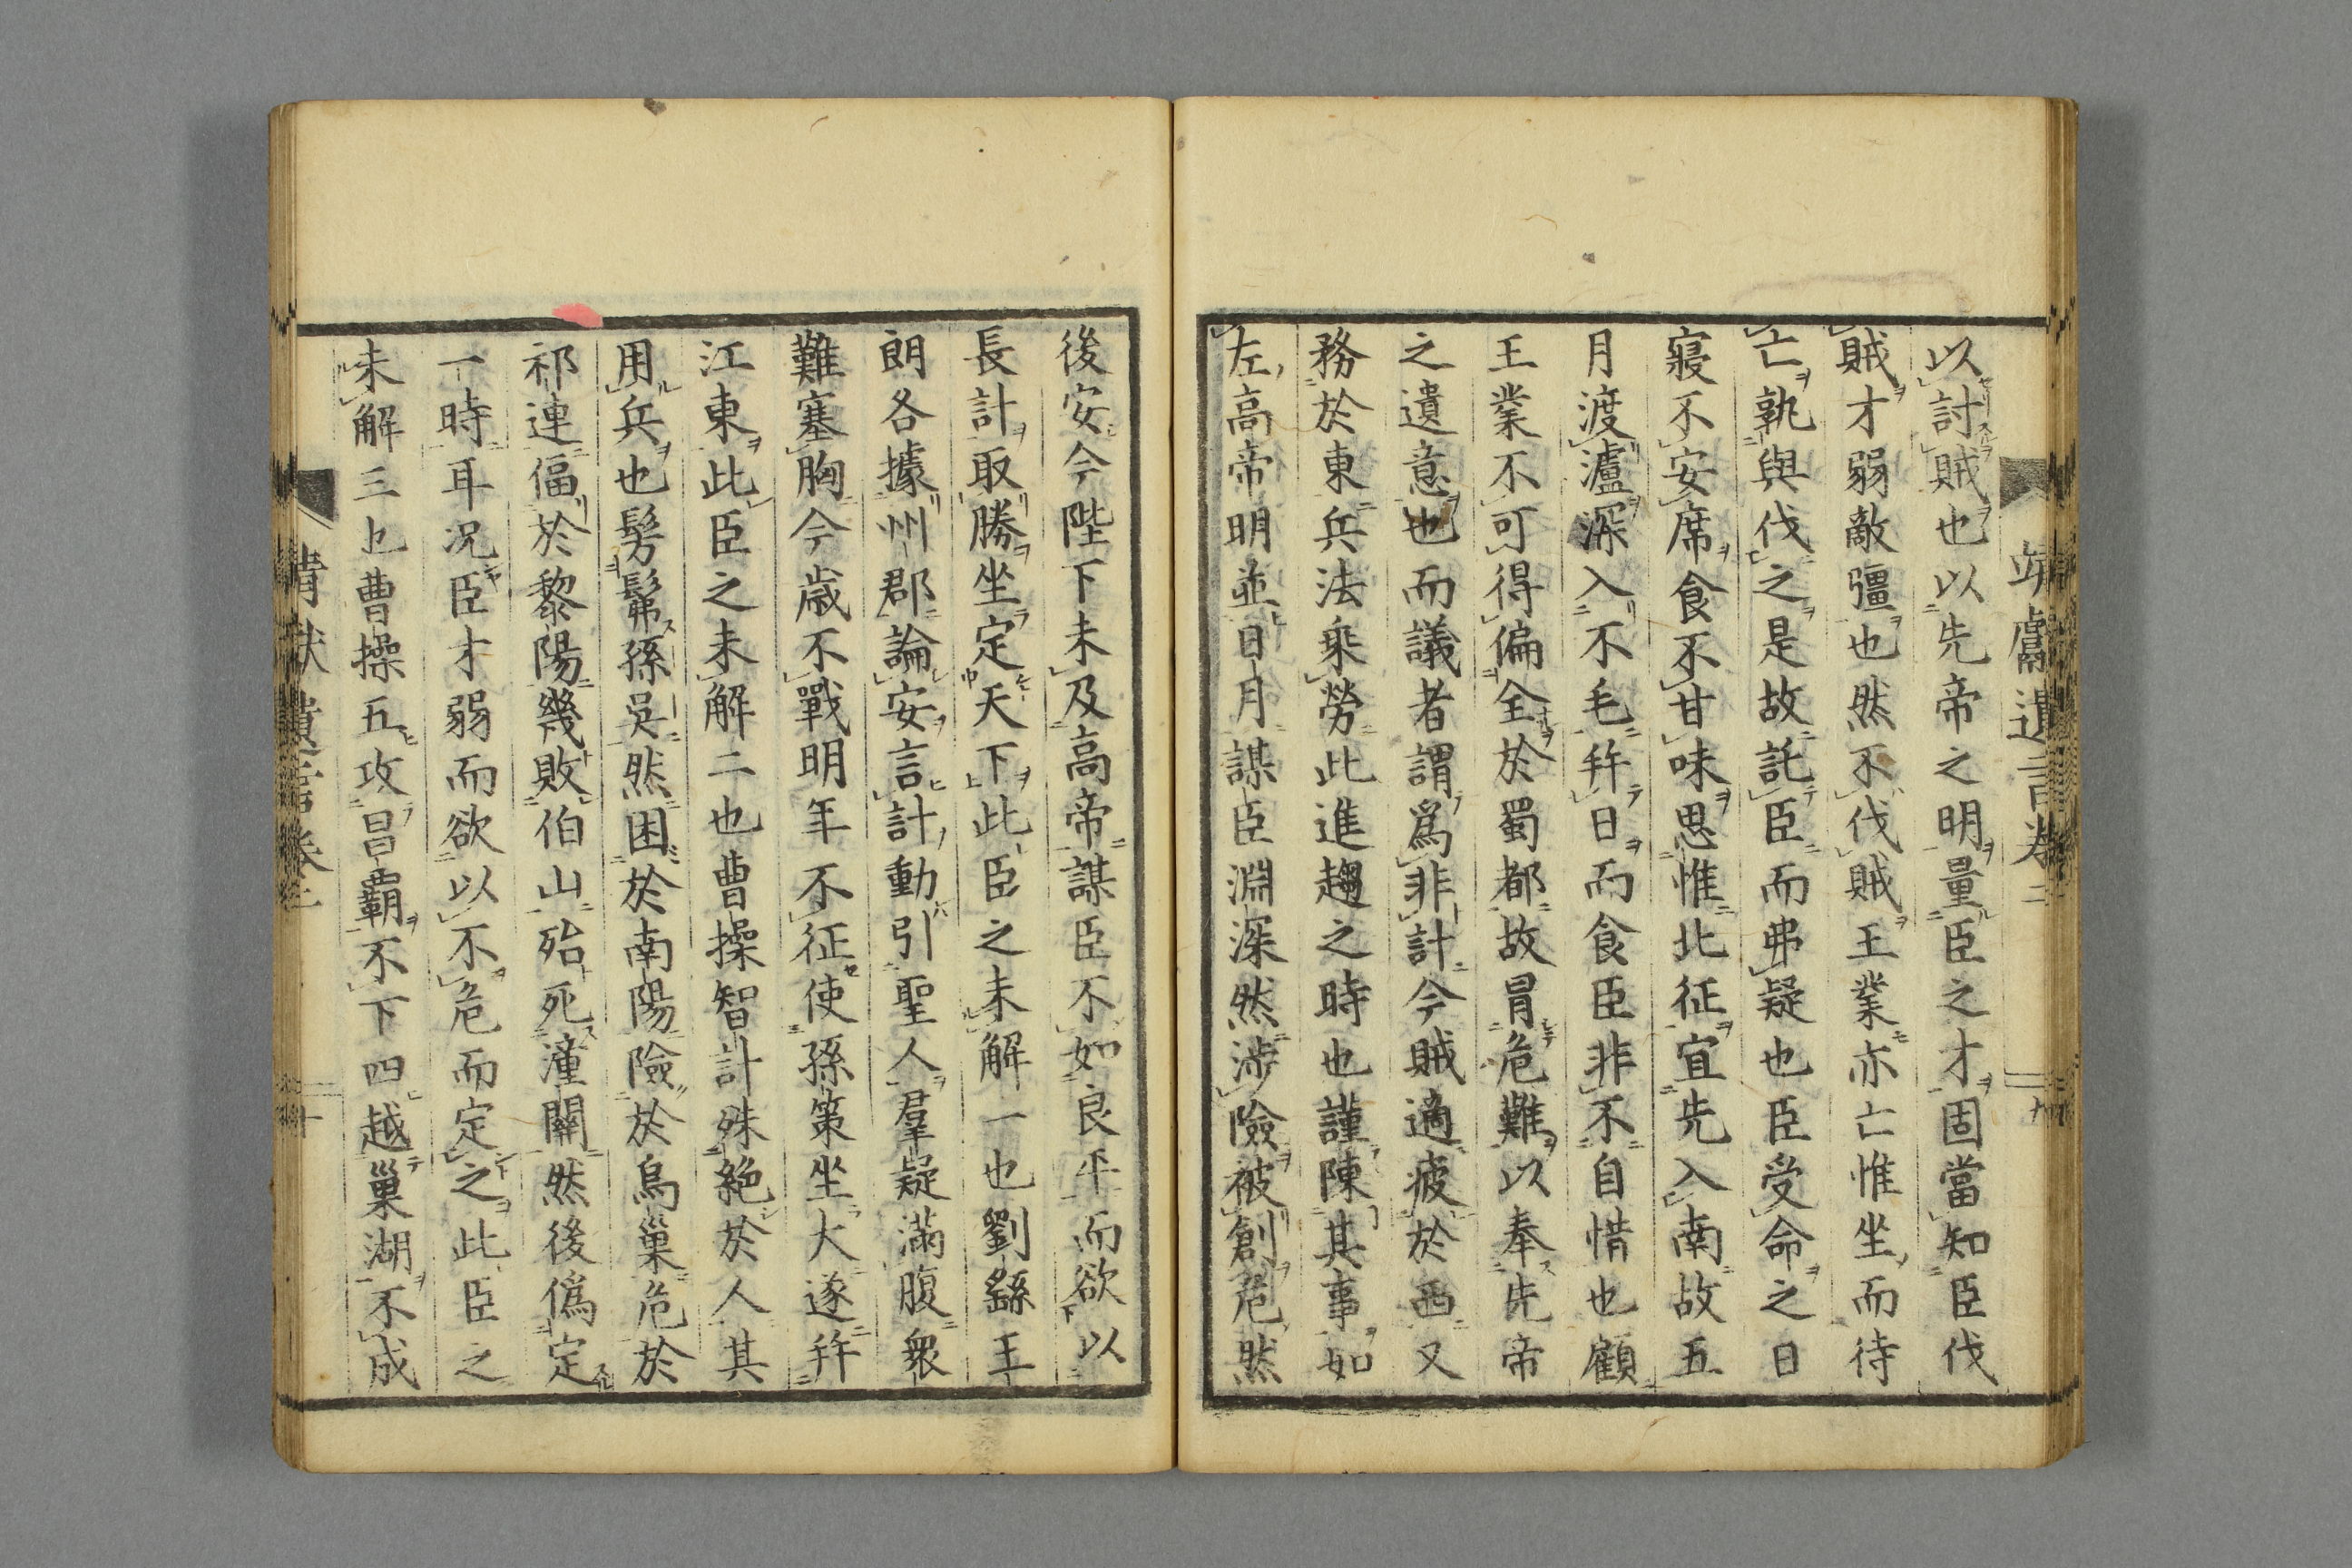 靖獻遺言卷二
九
以討賊也以先帝之明量臣之才固當知臣伐
賊才弱敵彊也然不伐賊王業亦亡惟坐而待
亡孰與伐之是故託臣而弗疑也臣受命之日
寢不安席食不甘味思惟北征宜先入南故五
月渡瀘深入不毛幷日而食臣非不自惜也顧
王業不可得偏全於蜀都故冒危難以奉先帝
之遺意也而議者謂爲非計今賊適疲於西又
務於東兵法乘勞此進趨之時也謹陳其事如
左高帝明並日月謀臣淵深然涉險被創危然
後安今陛下未及高帝謀臣不如良平而欲以
長計取勝坐定天下此臣之未解一也劉繇王
朗各據州郡論安言計動引聖人羣疑滿腹衆
難塞胸今歲不戰明年不征使孫策坐大遂幷
江東此臣之未解二也曹操智計殊絶於人其
用兵也髣髴孫吳然困於南陽險於烏巢危於
祁連偪於黎陽幾敗伯山殆死潼關然後僞定
一時耳况臣才弱而欲以不危而定之此臣之
未解三也曹操五攻昌覇不下四越巢湖不成
靖獻遺言卷二
十